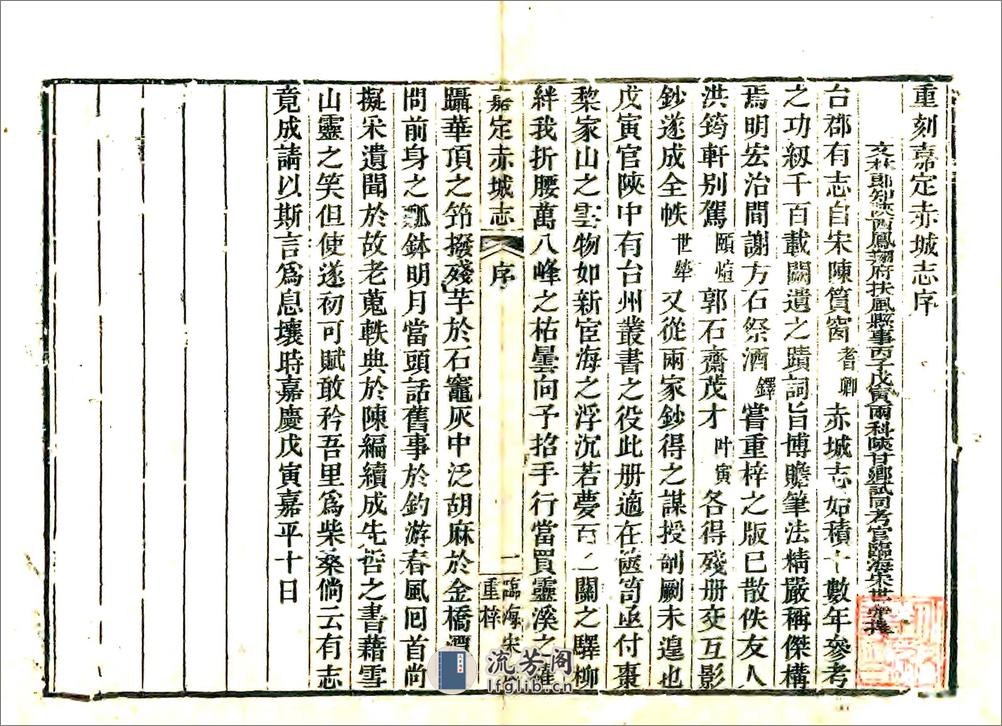 重刻嘉定赤城志序
文林郎知陝西鳳翔府扶風縣事丙子戊寅兩科陝甘鄉試同考官臨海宋世犖撰
台郡有志自宋陳篔窗耆卿赤城志始積十數年參考
之功級千百載闕遺之蹟詞旨博贍筆法精嚴稱傑構
焉明宏治間謝方石祭酒鐸嘗重梓之版已散佚友人
洪筠軒别駕頤煊郭石齋茂才叶寅各得殘册交互影
鈔遂成全帙世犖又從兩家鈔得之謀授剞劂未遑也
戊寅官陝中有台州叢書之役此册適在篋笥亟付棗
棃家山之雲物如新宦海之浮沉若夢百二關之驛柳
絆我折腰萬八峰之祐曇向予招手行當買靈溪之
嘉定赤城志 序 一 臨海宋氏重梓
躡華頂之筇撥殘芋於石竈灰中泛胡麻於金橋潭
問前身之瓢鉢明月當頭話舊事於釣游春風回首尚
擬采遺聞於故老蒐軼典於陳編續成先哲之書藉雪
山靈之笑但使遂初可賦敢矜吾里爲柴桑倘云有志
竟成請以斯言爲息壤時嘉慶戊寅嘉平十日
流芳阁
lfglib.cn